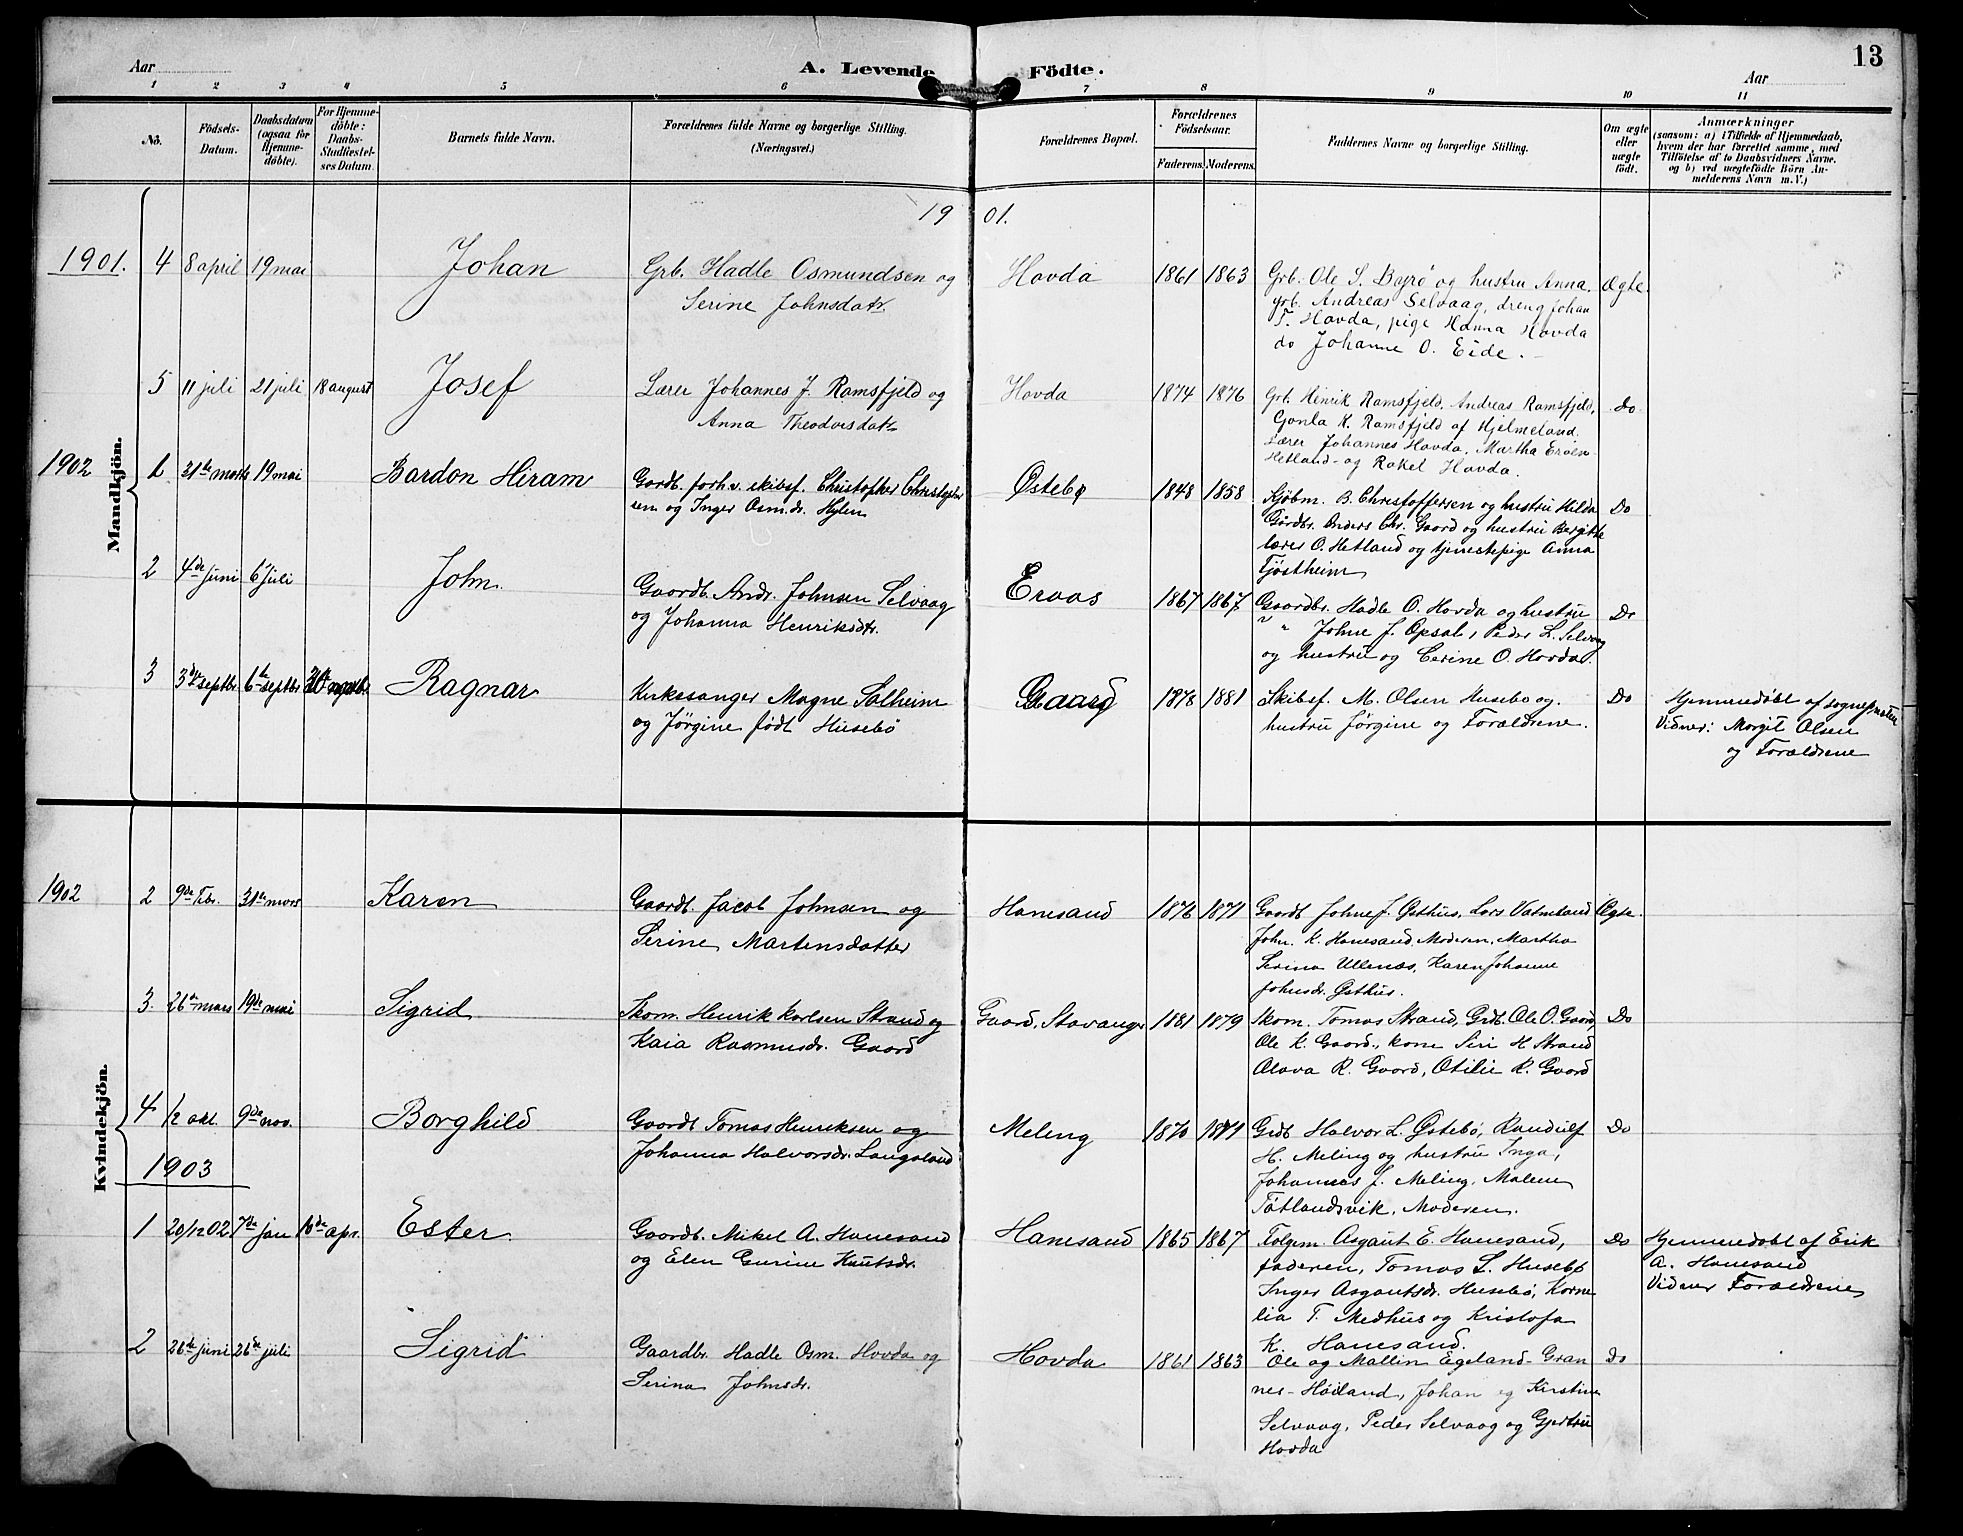 13
Aar
A. Levende Födte.
Aar
1 2 3 4 5 6 7 8 9 10 11
No.
Födsels-Datum.
Daabsdatum (ogsaa for Hjemme-döbte).
For Hjemme-döbte: Daabs-Stadfæstel-ses Datum.
Barnets fulde Navn.
Forældrenes fulde Navne og borgerlige Stilling.
(Næringsvei.)
Forældrenes Bopæl.
Forældrenes Födselsaar.
Faderens. Moderens.
Faddernes Navne og borgerlige Stilling.
Om ægte eller uægte født.
Anmærkninger
(saasom: a) i Tilfælde af Hjemmedaab,
hvem der har forrettet samme, med
Tilföielse af to Daabsvidners Navne,
og b) ved uægtefödte Börn An-
melderens Navn m. V.)
Mandkjön.
19 01.
1901. 4 8 april 19 mai Johan Grb. Hadle Osmundsen og Hovda 1861 1863 Grb. Ole S. Byrø og hustru Anna, Ægte.
Serine Johnsdatr. grb. Andreas Selvaag, dreng Johan
T. Hovda, pige Hanna Hovda
do Johanne O. Eide.
5 11 juli 21 juli 18 august Josef Lærer Johannes J. Ramsfjeld og Hovda 1874 1876 Grb. Henrik Ramsfjeld, Andreas Ramsfjeld, Do
Anna Theodorsdatr Gonla K. Ramsfjeld af Hjelmeland.
Lærer Johannes Hovda, Martha
Hetland og Rakel Hovda.
1902 1. 31te marts 19 mai Bardon Hiram Gardb. forh.v. skibsf. Christopher Christopher Østebø 1848 1858 Kjøbm. B. Christoffersen og hustru Hilda Do
sen og Inger Osm.dr. Hylen Gårdbr. Anders Chr. Gaard og hustru Bergitte
lærer O. Hetland og tjenestepige Anna
Tjøstheim
2 4de juni 6 juli John. Gaardb. Andr. Johnsen Selvaag Eraas 1867 1867 Gaardbr. Hadle O. Hovda og hustru Do
og Johanna Henriksdtr. " " Johne J. Opsal, Peder L. Selvaag
og hustru og Cerine O. Hovda.
3 3die septbr. 6te septbr Ragnar Kirkesanger Magne Solheim Gaard 1878 1881 Skibsf. M. Olsen Husebø og. Do Hjemmedøbt af sognepresten
og Jørgine født Husebö hustru Jørgine og Forældrene. Vidner: Margit Olsen
og Forældrene
Kvindekjön.
1902 2 9de Febr. 31te mars Karen Gaardb. Jacob Johnsen og Hanesand 1876 1871 Gaardb Johne J. Østhus, Lars Vatneland Ægte.
Serine Martensdatter John. K. Hanesand, Moderen, Martha
Serina Ullenæs, Karen Johanne
Johnsdr. Østhus.
3. 26de mars 19de mai Sigrid Skom. Henrik Karlsen Strand og Gaard, Stavanger 1881 1879 Skom. Tomas Strand, Grdb. Ole O. Gaard, Do
Kaia Rasmusdr. Gaard Ole K. Gaard, kone Siri H Strand
Alava R. Gaard, Otilie R. Gaard
4 1/2 okt. 9de nov. Borghild Gaardb Tomas Henriksen og Meling 1870 1871 Grdb Halvor L. Østebö, Randulf Do
Johanna Halvorsdr. Langeland H. Meling og hustru Inga,
Johannes J. Meling, Malene
Tøtlandsvik, Moderen.
1903
1 20/12 02 7de jan 10de apr. Ester Gaardb. Mikel A. Hanesand Hanesand 1865 1867 Folgem. Asgaut E. Hanesand, Do Hjemmedøbt af Erik
og Elen Gurine Knutsdr. faderen, Tomas L. Husebø A. Hanesand
Inger Asgautsdr. Husebö, Korne Vidner Forældrene
lia T. Medhus og Kristofa
K. Hanesand.
2 26de juni 26de juli Sigrid Gaardbr. Hadle Osm. Hovda og Hovda 1861 1863 Ole og Mallin Egeland-Gran Do
Serina Johnsdr. nes-Høiland, Johan og Kirstine
Selvaag, Peder Selvaag og Gjertru
Hovda